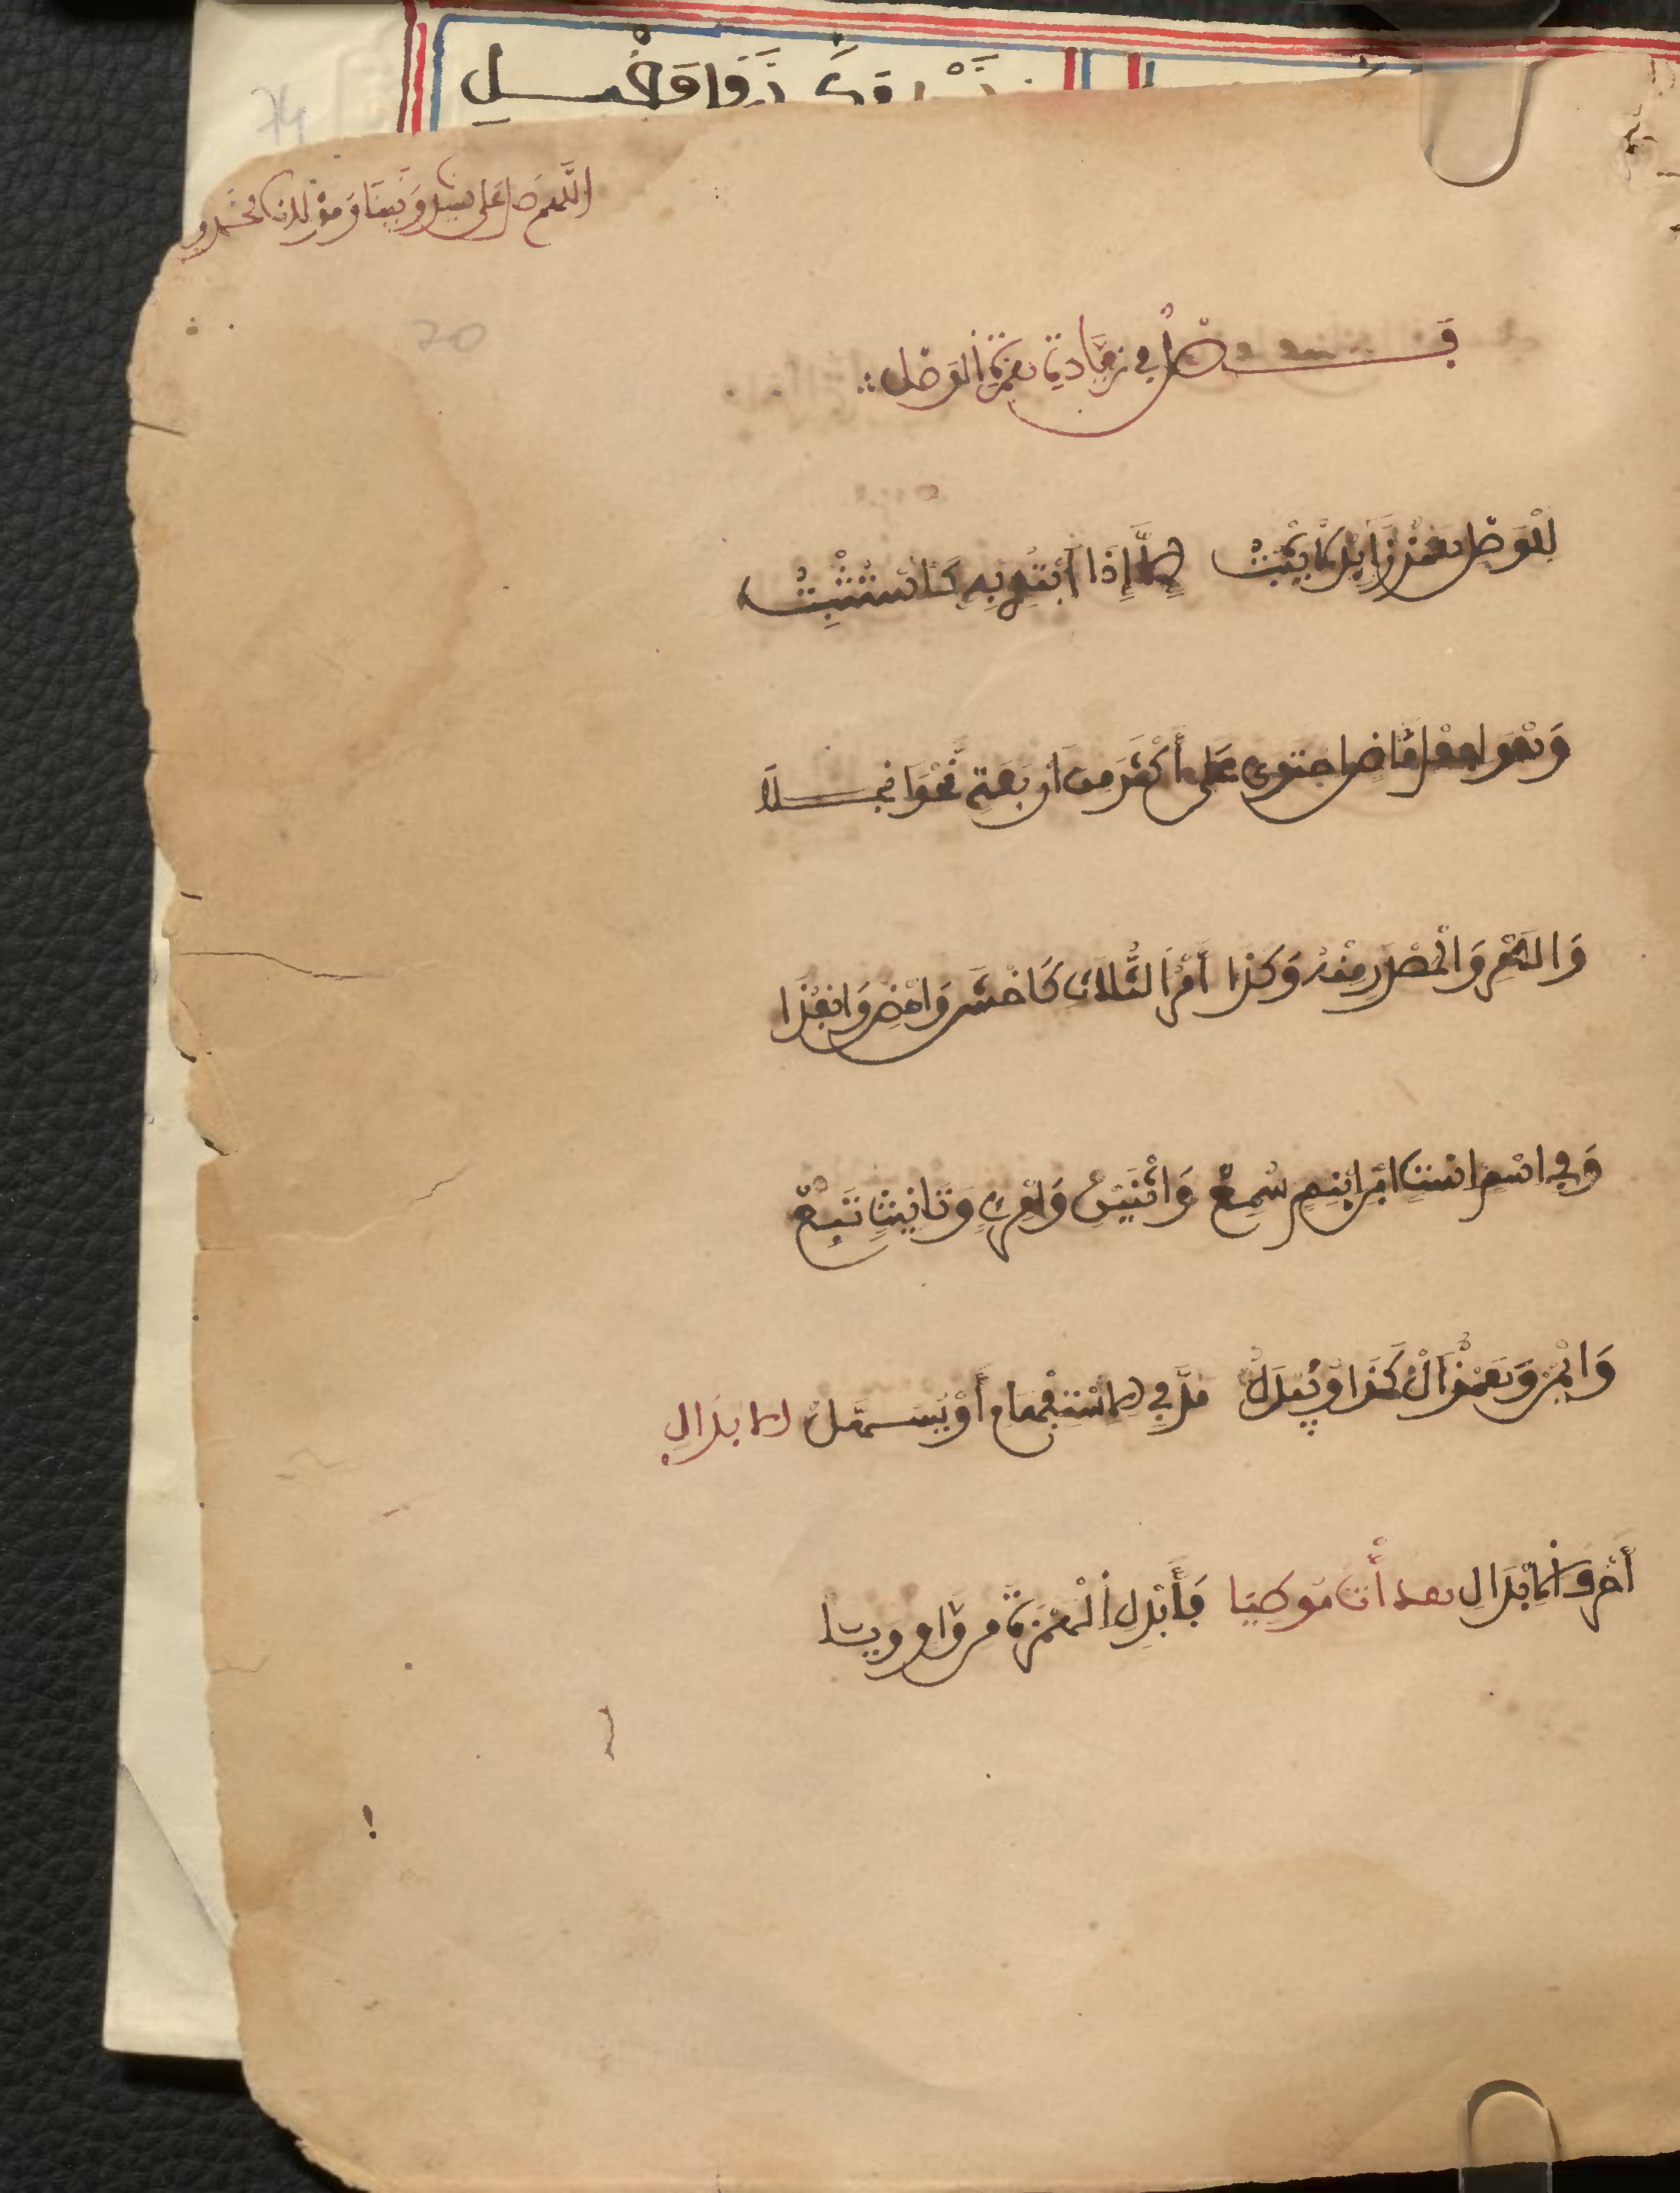 اللَّهُمَّ صَلِّ عَلَى سَيِّدِنَا وَنَبِيِّنَا وَمَوْلَانَا مُحَمَّدٍ
فَصْلٌ فِي زِيَادَةِ هَمْزَةِ الْوَصْلِ
لِلْوَصْلِ هَمْزٌ زَائِدٌ لَا يَثْبُتُ إِلَّا إِذَا ابْتُدِي بِهِ كَاسْتَثْبِتُوا
وَهْوَ لِفِعْلٍ مَاضٍ احْتَوَى عَلَى أَكْثَرَ مِنْ أَرْبَعَةٍ نَحْوَ انْجَلَا
وَالْأَمْرِ وَالْمَصْدَرِ مِنْهُ وَكَذَا أَمْرُ الثُّلَاثِ كَاخْشَ وَامْضِ وَانْفُذَا
وَفِي اسْمٍ اسْتٍ ابْنٍ ابْنِمٍ سُمِعْ وَاثْنَيْنِ وَامْرِئٍ وَتَأْنِيثٍ تَبِعْ
وَايْمُنُ وَهَمْزُ أَلْ كَذَا وَيُبْدَلُ مَدًّا فِي الِاسْتِفْهَامِ أَوْ يُسَهَّلُ الابدال
أَحْرُفُ الْإِبْدَالِ هدأت موطيا فَأَبْدِلِ الْهَمْزَةَ مِنْ وَاوٍ وَيَا